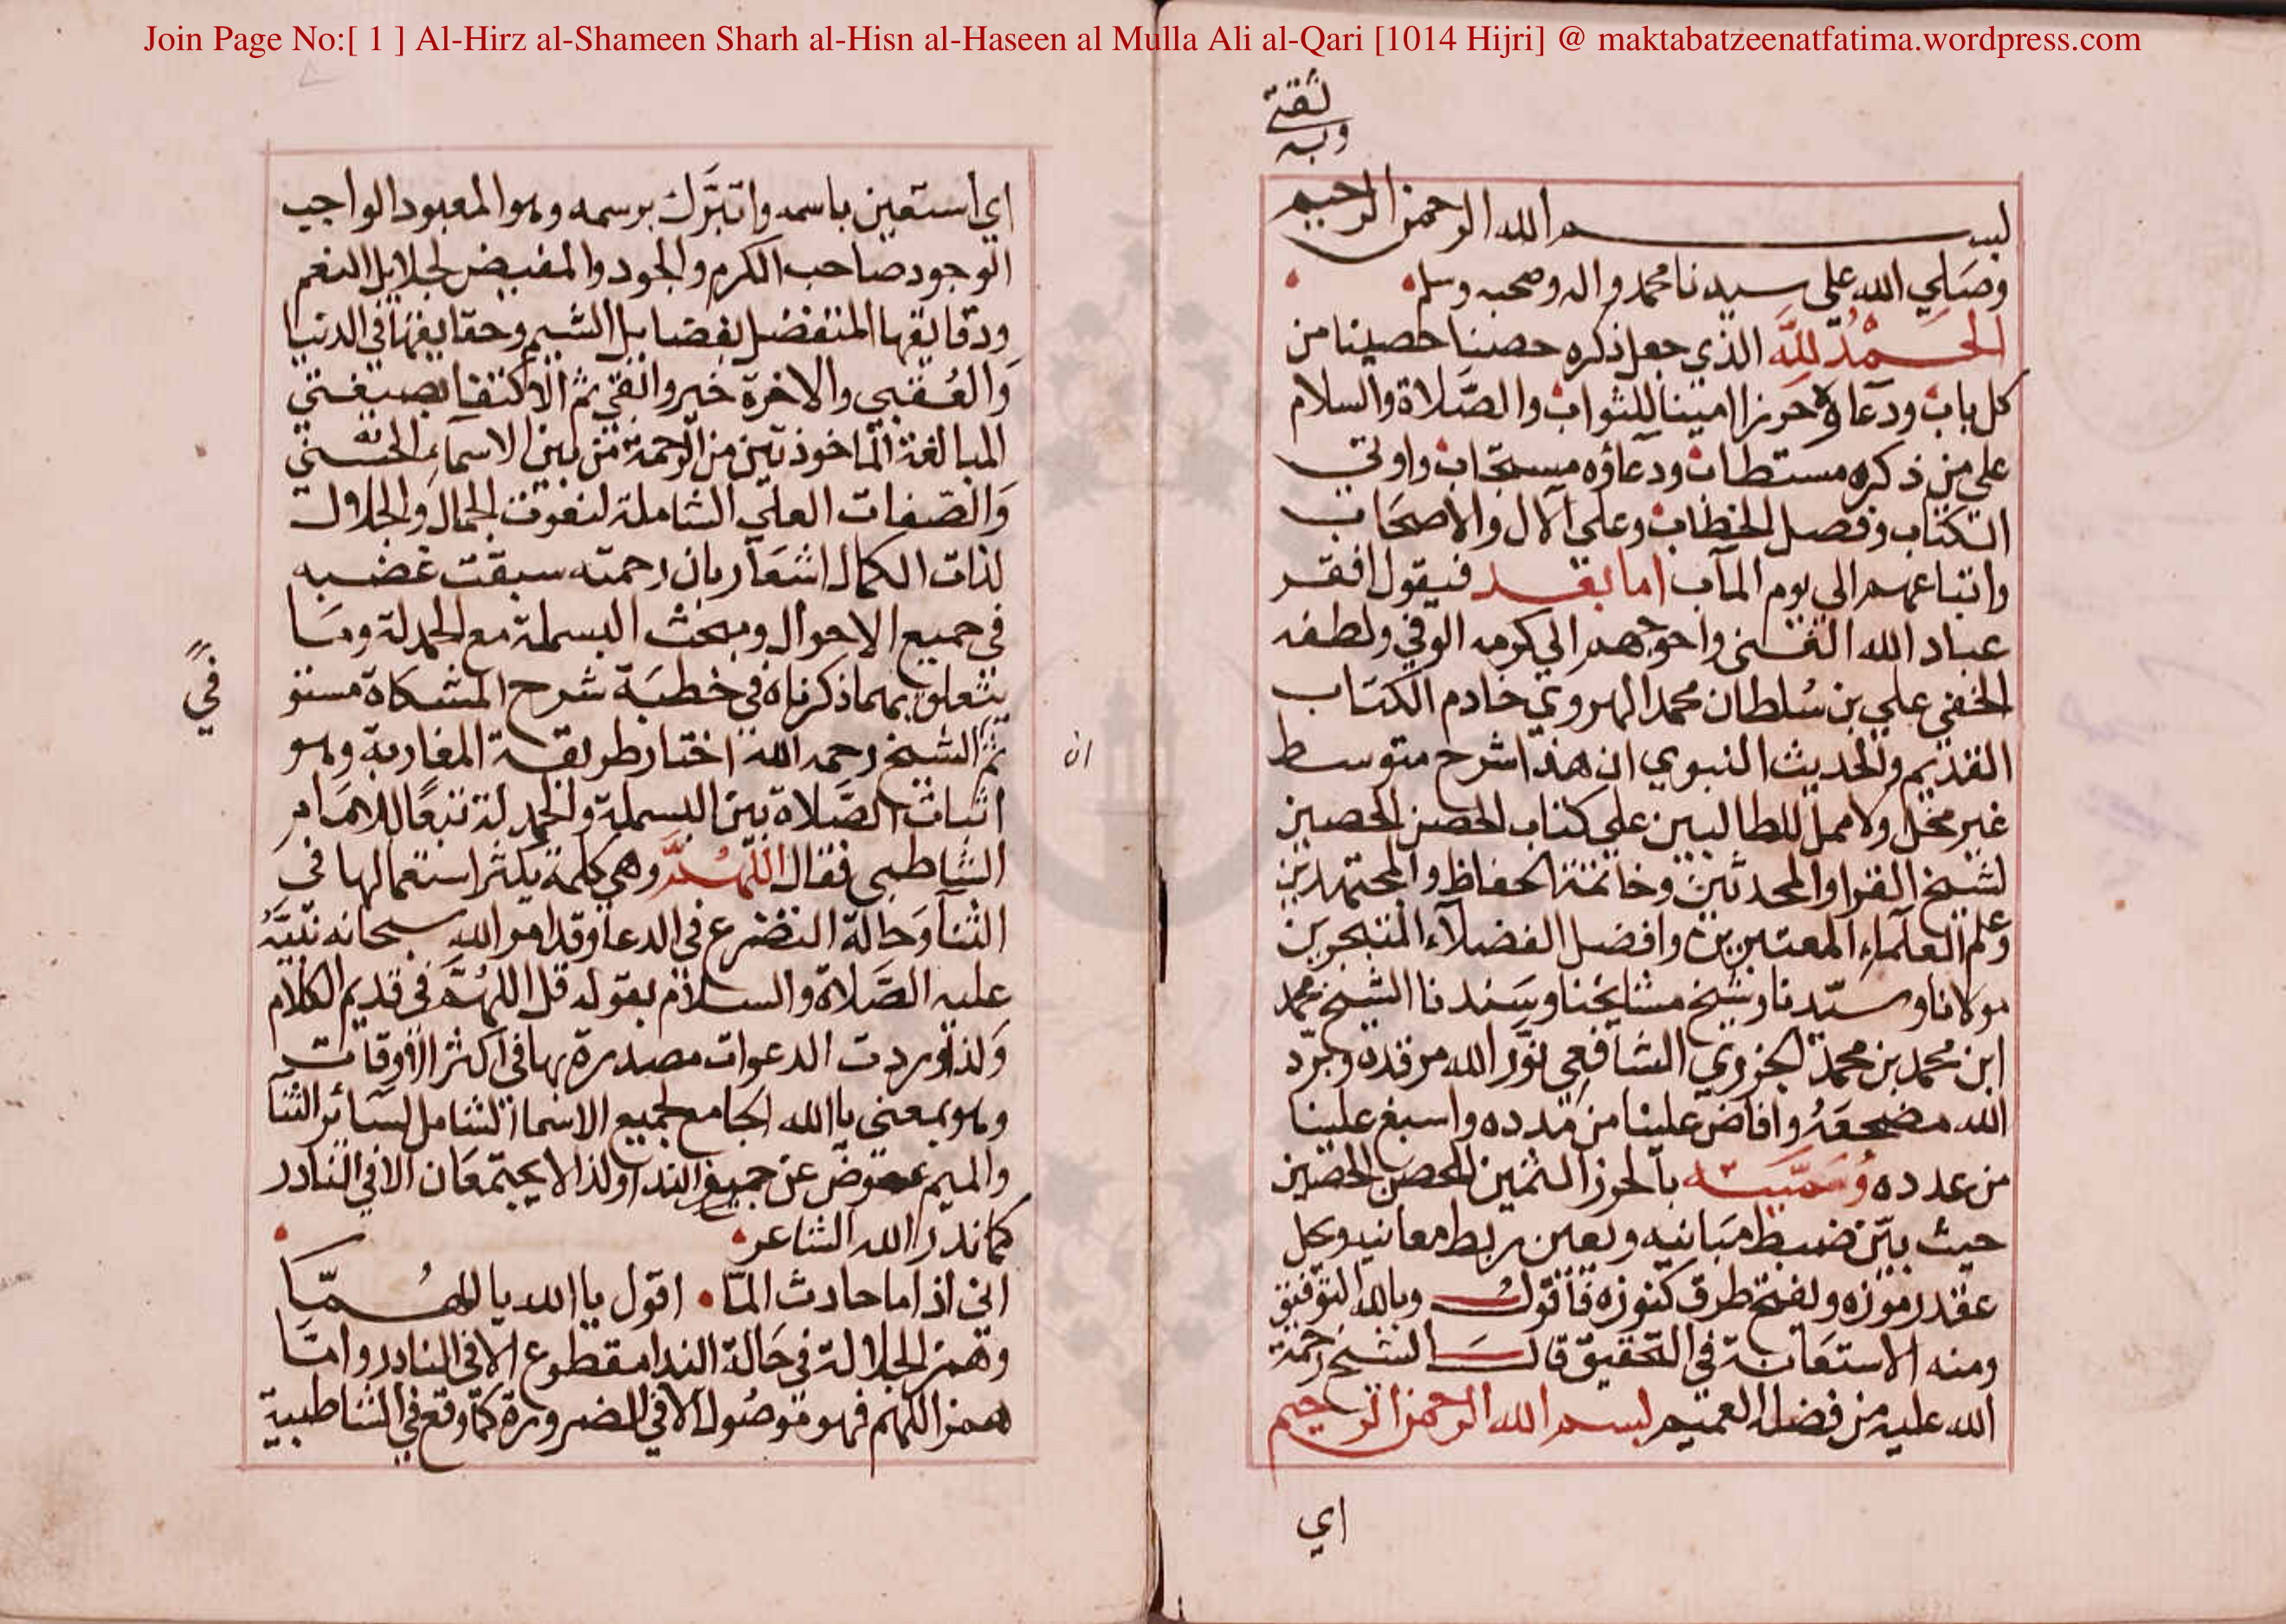 Join Page No:[ 1 ] Al-Hirz al-Shameen Sharh al-Hisn al-Haseen al Mulla Ali al-Qari [1014 Hijri] @ maktabatzeenatfatima.wordpress.com
وبه ثقتي
بسم الله الرحمن الرحيم
وصلي الله علي سيدنا محمد واله وصحبه وسلم
الحمد لله الذي جعل ذكره حصنا حصينا من
كل باب ودعاؤه حرزا امينا للثواب والصلاة والسلام
علي من ذكره مستطاب ودعاؤه مستجاب واوتي
الكتاب وفصل الخطاب وعلي الآل والاصحاب
واتباعهم الي يوم المآب اما بعد فيقول افقر
عباد الله الغني واحوجهم الي كرمه الوفي ولطفه
الخفي علي بن سلطان محمد الهروي خادم الكتاب
القديم والحديث النبوي ان هذا شرح متوسط
غير مخل ولا ممل للطالبين علي كتاب الحصن الحصين
لشيخ القرا والمحدثين وخاتمة الحفاظ والمجتهدين
وعلم العلماء المعتبرين وافضل الفضلاء المتبحرين
مولانا وسيدنا وشيخ مشايخنا وسندنا الشيخ محمد
ابن محمد بن محمد الجزري الشافعي نور الله مرقده وبرد
الله مضجعه وافاض علينا من مدده واسبغ علينا
من عدده وسميته بالحرز الثمين للحصن الحصين
حيث بين ضبط مبانيه ويعين ربط معانيه ويحل
عقد رموزه ويفتح طرق كنوزه فأقول وبالله التوفيق
ومنه الاستعانة في التحقيق قال الشيخ رحمة
الله عليه من فضله العميم بسم الله الرحمن الرحيم
اي
اي استعين باسمه واتبرك برسمه وهو المعبود الواجب
الوجود صاحب الكرم والجود والمفيض لجلايل النعم
ودقايقها المتفضل بفضايل الشيم وحقايقها في الدنيا
والعقبي والاخرة خير وابقي ثم الاكتفا بصيغتي
المبالغة الماخوذتين من الرحمة من بين الاسماء الحسني
والصفات العلي الشاملة لنعوت الجمال والجلال
لذات الكمال اشعار بان رحمته سبقت غضبه
في جميع الاحوال ومبحث البسملة مع الحمدلة وما
يتعلق بهما ذكرناه في خطبة شرح المشكاة مستوفي
ثم الشيخ رحمه الله اختار طريقة المغاربة وهو
ان
اثبات الصلاة بين البسملة والحمدلة تبعا للامام
الشاطبي فقال اللهم وهي كلمة يكثر استعمالها في
الثنا وحالة التضرع في الدعا وقد امر الله سبحانه نبيه
عليه الصلاة والسلام بقوله قل اللهم في قديم الكلام
ولذا وردت الدعوات مصدرة بها في اكثر الاوقات
وهو بمعني يا الله الجامع لجميع الاسما الشامل لسائر الثنا
والميم عوض عن الندا ولذا لا يجتمعان الا في النادر
كما ندر الله الشاعر
اني اذا ما حادث الما اقول يا الله يا اللهما
وهمز الجلالة في حالة الندا مقطوع الا في النادر واما
همز اللهم فهو موصول الا في الضرورة كما وقع في الشاطبية